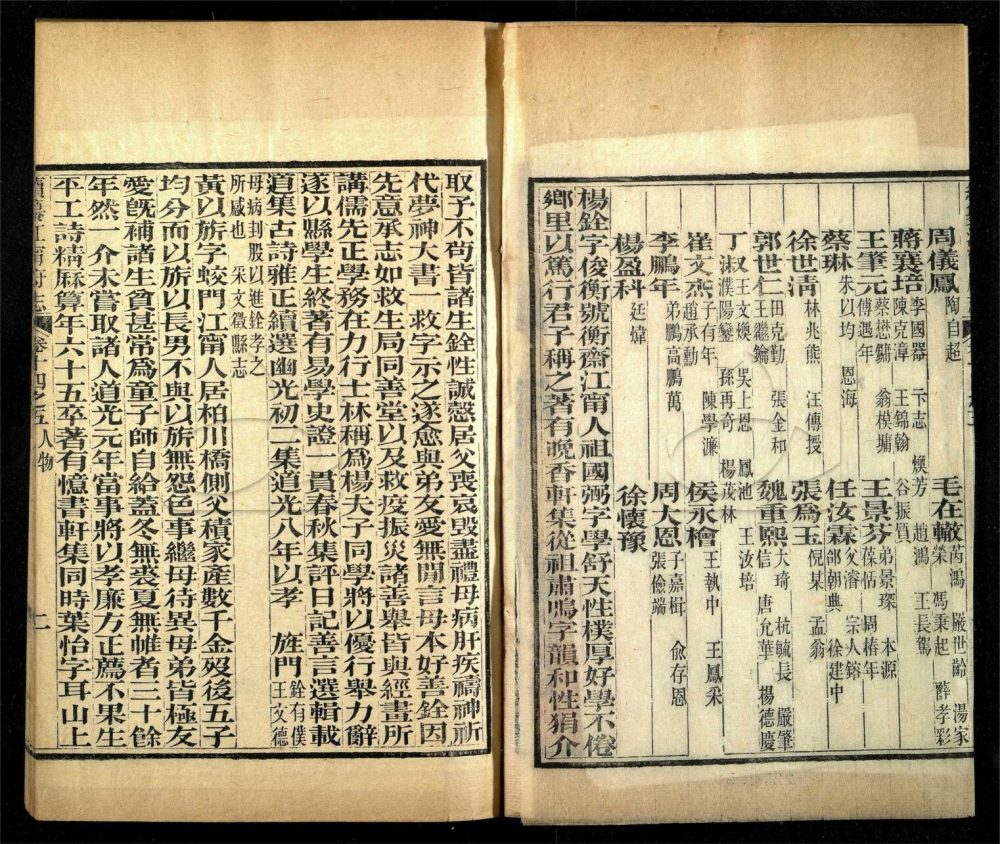 周儀鳳 陶自超 毛在轍 芮鴻 嚴世齡 湯家
蔣襄培 李國器 卞志 陳克漳 王錦翰 谷振質 趙鴻 王長
王肇元 蔡懋鏞 翁模墉 傅遇年 王景芬 弟景琛 本源 葆恬 周椿年
蔡琳 朱以均 恩海 任汝霖 父濬 宗人鎔 邰朝典 徐建中
徐世淸 林兆熊 汪傳授 張爲玉 倪某 孟翁
郭世仁 田克勤 張金和 王繼鑰 魏重熙 大琦 杭毓長 嚴肇 信 唐允華 楊德慶
丁沫 又王文煥 吳上恩 鳳池 王汝培 濮陽鑾 孫再奇 楊茂林
崔文杰 子有年 陳學濂 趙承勳 侯永檜 王執中 王鳳釆
李鵬年 弟鵬高鵬萬 周大恩 子嘉楫 兪存恩 張儉端
楊盈科 廷煒 徐懷豫
楊銓字俊衡號衡齋江甯人祖國弼字學舒天性樸厚好學不倦
鄉里以篤行君子稱之著有晚香軒集從祖肅鳴字韻和性狷介
取予不苟皆諸生銓性誠慤居父喪哀毀盡禮母病肝疾禱神祈
代夢神大書一救字示之遂愈與弟友愛無閒言母本好善銓因
先意承志如救生局同善堂以及救疫振災諸善舉皆與經畫所
講儒先正學務在力行士林稱爲楊夫子同學將以優行舉力辭
遂以縣學生終著有易學史證一貫春秋集評日記善言選輯載
道集古詩雅正續選幽光初二集道光八年以孝 旌門 銓有僕王文德
母病刲股以進銓孝之
所感也 采文徵縣志
黃以旂字蛟門江甯人居柏川橋側父積家產數千金歿後五子
均分而以旂以長男不與以旂無怨色事繼母待異母弟皆極友
愛旣補諸生貧甚常爲童子師自給蓋冬無裘夏無帷者三十餘
年然一介未嘗取諸人道光元年當事將以孝廉方正薦不果生
平工詩精厤算年六十五卒著有憶書軒集同時葉怡字耳山上
續纂江甯府志 卷十四之五 人物 二